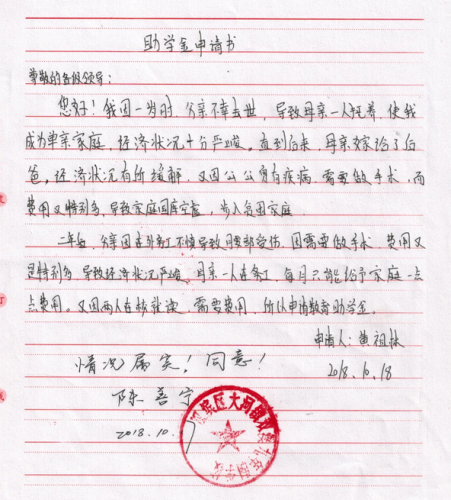 助学金申请书
尊敬的各级领导：
您好！我因一岁时，父亲不幸去世，导致母亲一人抚养，使我
成为单亲家庭，经济状况十分严峻。直到后来，母亲嫁给了后
爸。经济状况有所缓解，又因公公身有疾病，需要做手术，而
费用又特别多，导致家庭国库空虚，步入贫困家庭。
二年后，父亲因在外务工不慎导致受伤，因需要做手术，费用又
是特别多，导致经济状况严峻。母亲一人在务工，每月只能给予家庭一点
点费用。又因两人在校就读，需要费用，所以申请教育助学金。
申请人：黄祖
2018.10.18
情况属实！同意！
陈善宁
2018.10.
区大河镇